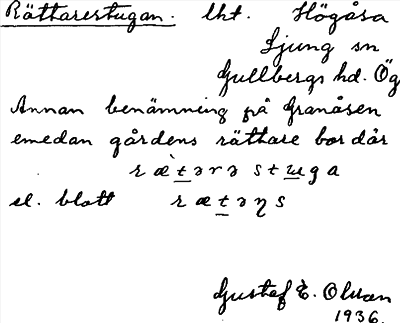 Rättarestugan. lht. Högåsa
Ljung sn
Gullbergs hd. Ög
Annan benämning på Granåsen
emedan gårdens rättare bor där
r æ̀ t ə r ə s t u g a
el. blott r æ t ə ŋ s
Gustef E. Olsson
1936.